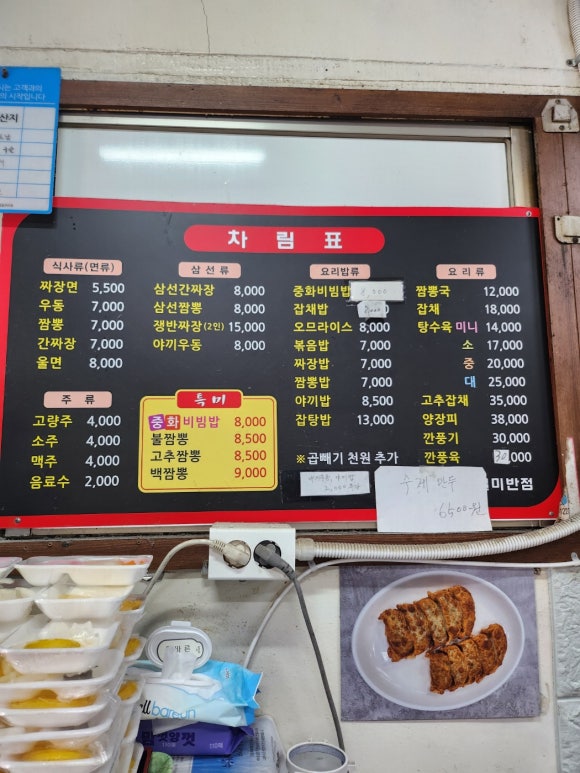 차림표
식사류(면류)
짜장면 5,500
우동 7,000
짬뽕 7,000
간짜장 7,000
울면 8,000
삼선류
삼선간짜장 8,000
삼선짬뽕 8,000
쟁반짜장(2인) 15,000
야끼우동 8,000
요리밥류
중화비빔밥
잡채밥
오므라이스 8,000
볶음밥 7,000
짜장밥 7,000
짬뽕밥 7,000
야끼밥 8,500
잡탕밥 13,000
※곱빼기 천원 추가
요리류
짬뽕국 12,000
잡채 18,000
탕수육 미니 14,000
소 17,000
중 20,000
대 25,000
고추잡채 35,000
양장피 38,000
깐풍기 30,000
깐풍육
주류
고량주 4,000
소주 4,000
맥주 4,000
음료수 2,000
특미
중화비빔밥 8,000
불짬뽕 8,500
고추짬뽕 8,500
백짬뽕 9,000
수제 만두
6500원
미반점